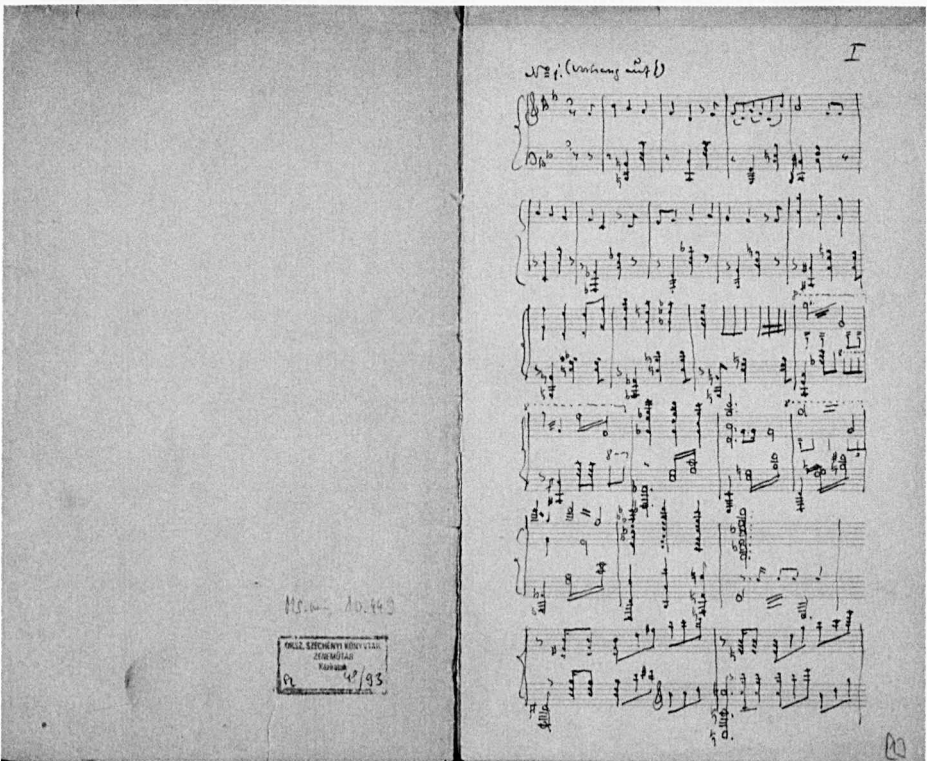 Ms. mus. 10.449
ORSZ. SZÉCHÉNYI KÖNYVTÁR
ZENEMŰTÁR
Kéziratok
48/93
I
№ 1. (Vorhang auf!)